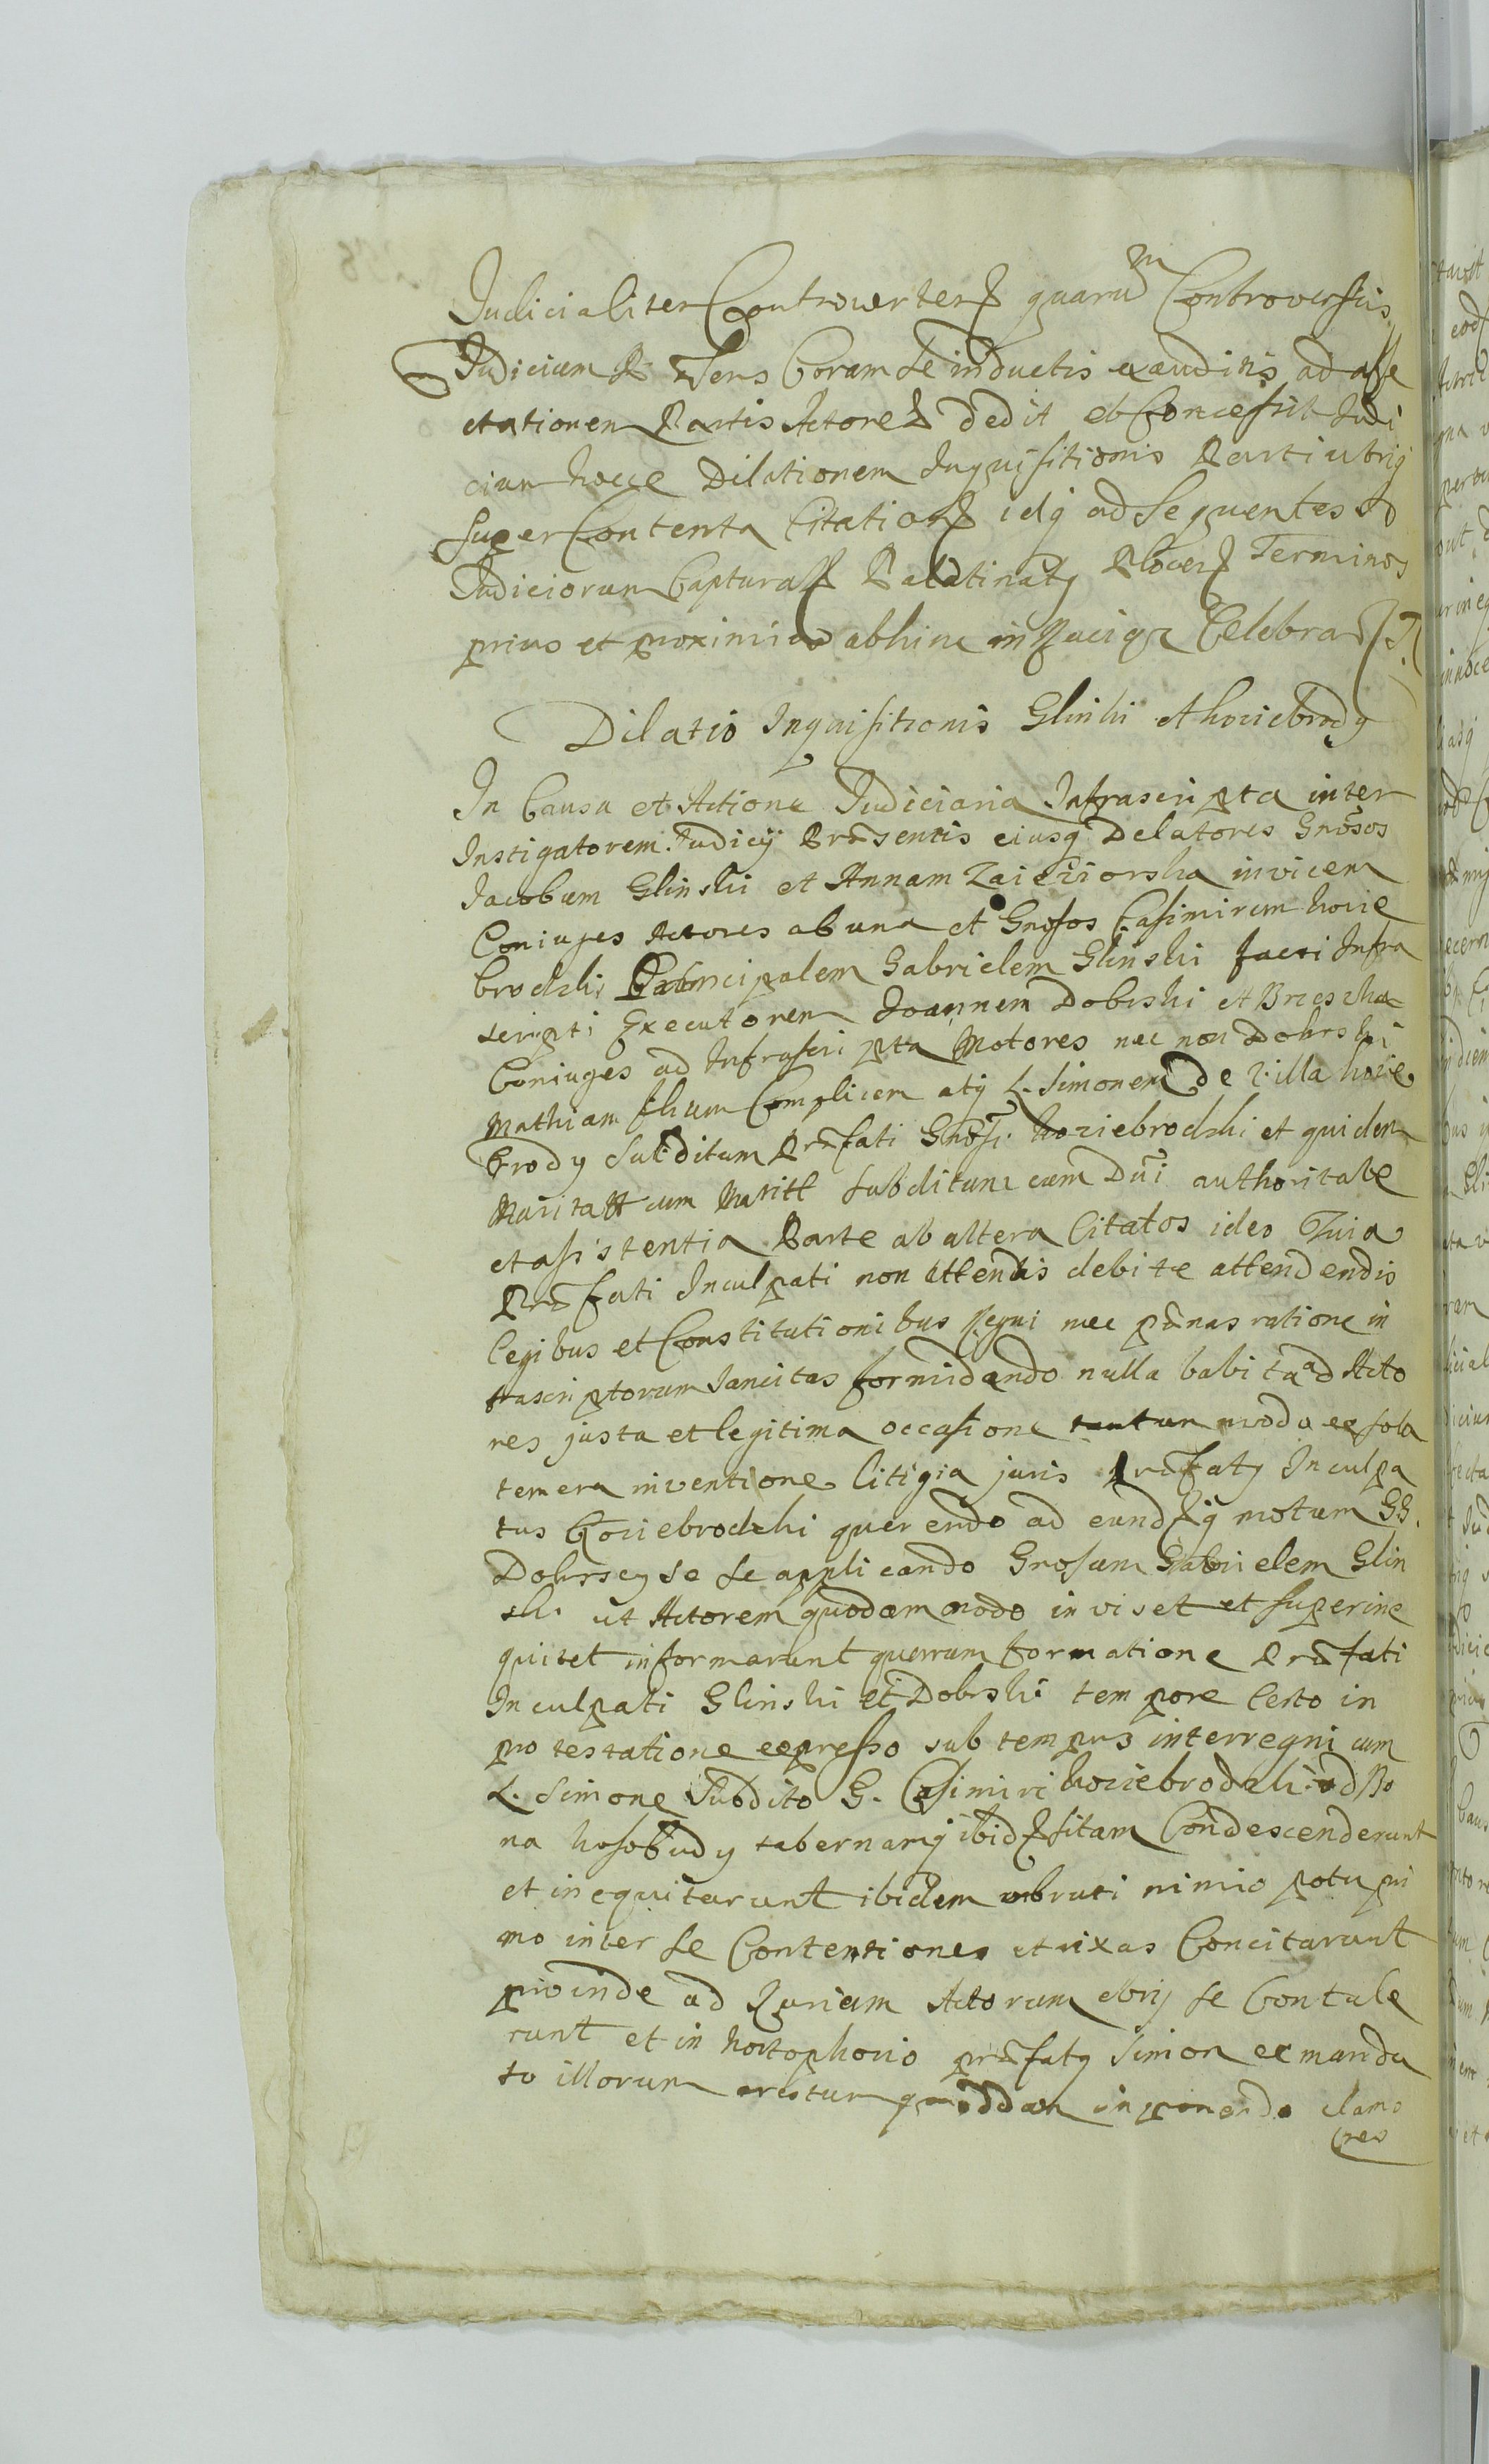 Judicialiter Controverten quarum Controversiis
Judicium P. Tens Coram Se inductis exauditis ad affe
ctationem Partis Actoreæ dedit et Concessit Judi
cium hocce Dilationem Inquisitionis Parti utriq
super Contenta Citation idq ad Sequentes
Judiciorum Captural Palatinatq Plocen Terminos
prius et proximius abhinc in Raciąz Celebra
Dilatio Inquisitionis Glinski et koziebrody
In Causa et Actione Judiciaria Infrascripta inter
Instigatorem Judicij Præsentis eiusq Delatores Gnosos
Jacobum Glinski et Annam invicem
Coniuges Actores ab una et Gnosos Casimirum kozie
brodzki Principalem Gabrielem Glinski facti Infra
scripti Executorem Joannem Dobrski et
Coniuges ad Infrascripta Motores nec non Dobrski
Mathiam filium Complicem atq L. Simonem de Villa kozie
brody Subditum Præfati Gnosi koziebrodzki et quidem
Marita cum Marito subditum cum Dni authoritate
et assistentia Parte ab altera Citatos ideo Quia
Præfati Inculpati non attentis debite attendendis
legibus et Constitutionibus Regni nec pœnas ratione in
frascriptorum sancitas formidando nulla habita ad Acto
res justa et legitima occasione tantum modo ex sola
temera inventione litigia juris Præfatq Inculpa
tus Koziebrodzki querendo ad eundq motum GG.
Dobrscy se se applicando Gnosum Gabrielem Glin
ski ut Actorem quodammodo inviset et superine
quitet informarunt quorum formatione Præfati
Inculpati Glinski et Dobrski tempore Certo in
protestatione expresso sub tempus interregni cum
L. Simone Subdito G. Casimiri koziebrodzki ad Bo
na kosobudy tabernamq ibid sitam Condescenderunt
et inequitarunt ibidem obruti nimio potu pri
mo inter se Contentiones et rixas Concitarunt
proinde ad Curiam Actorum ebrij se Contule
runt et in præfatq Simon ex manda
to illorum quoddam imponendo clamo
res